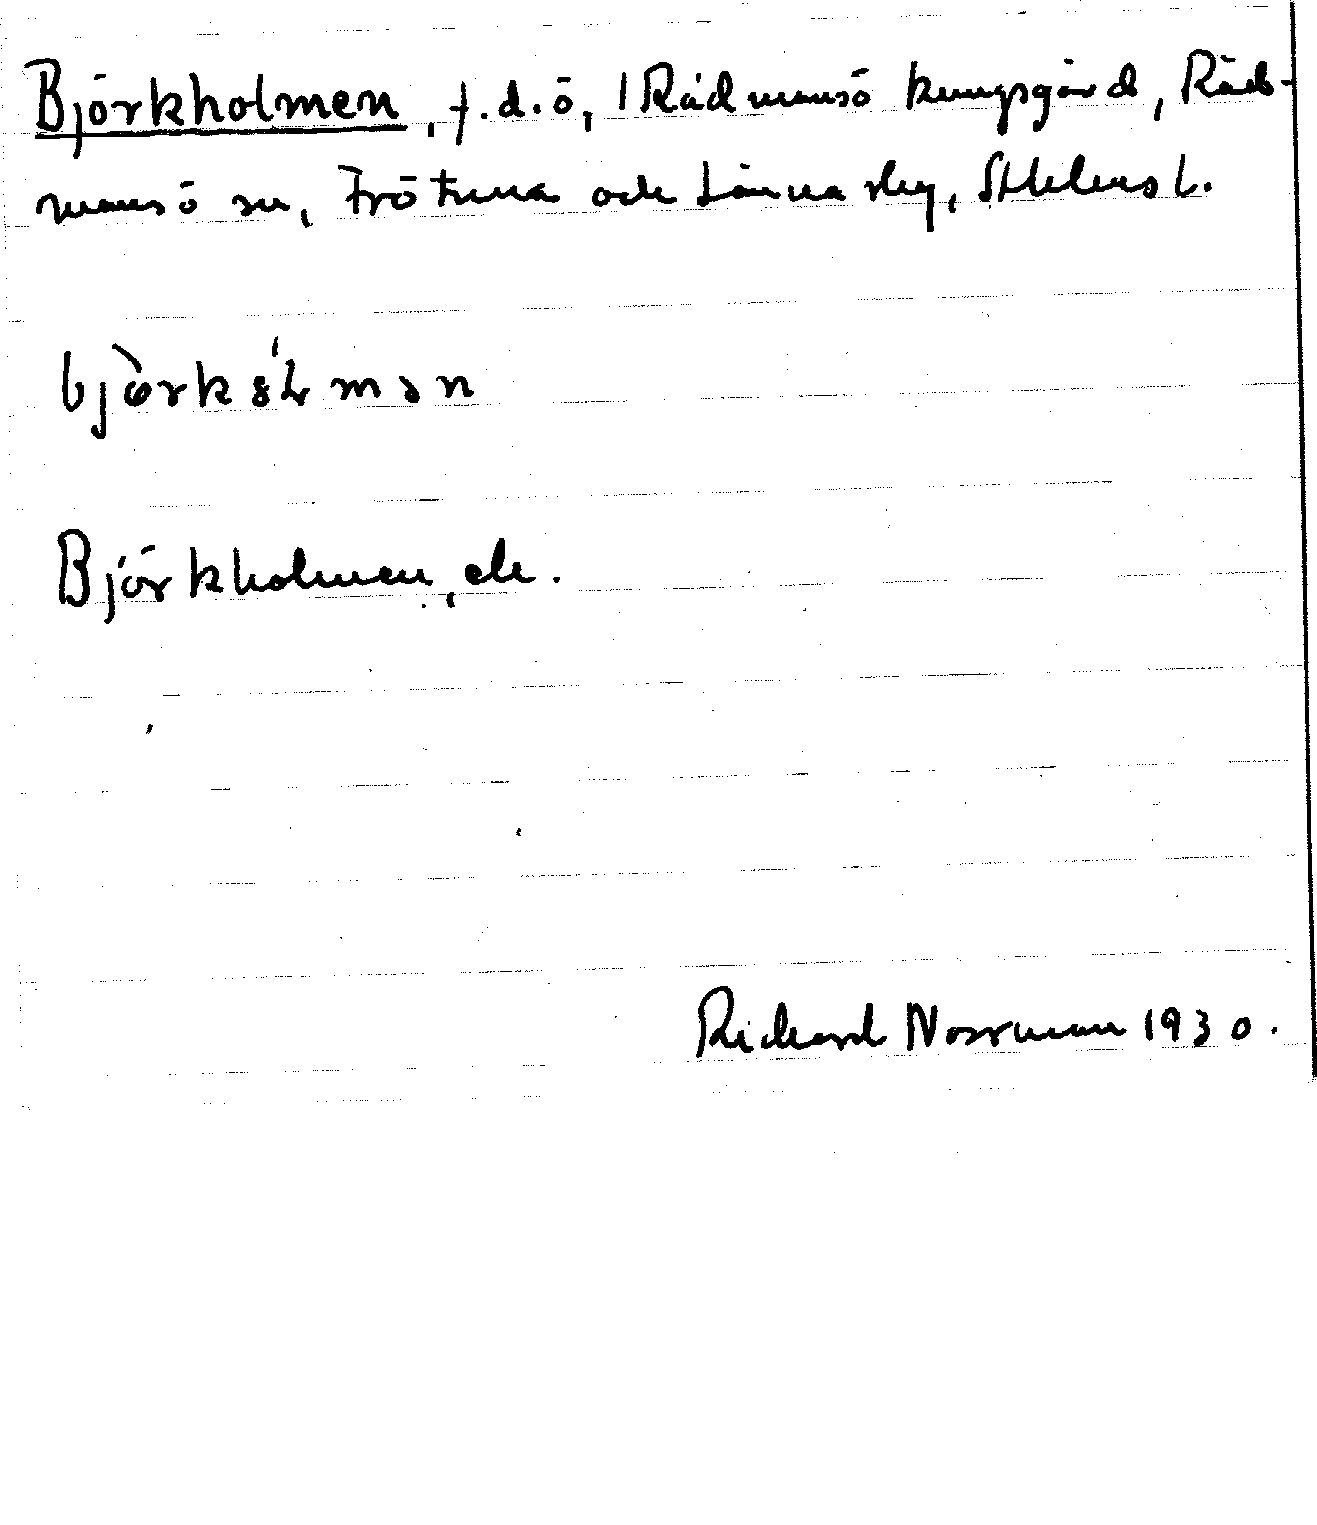 Björkholmen, f.d. ö, 1 Rådmansö kungsgård, Råd-
mansö sn, Frötuna och Länna slg, Sthlms l.
Björkholmen, ele.
Richard Norrman 1930.